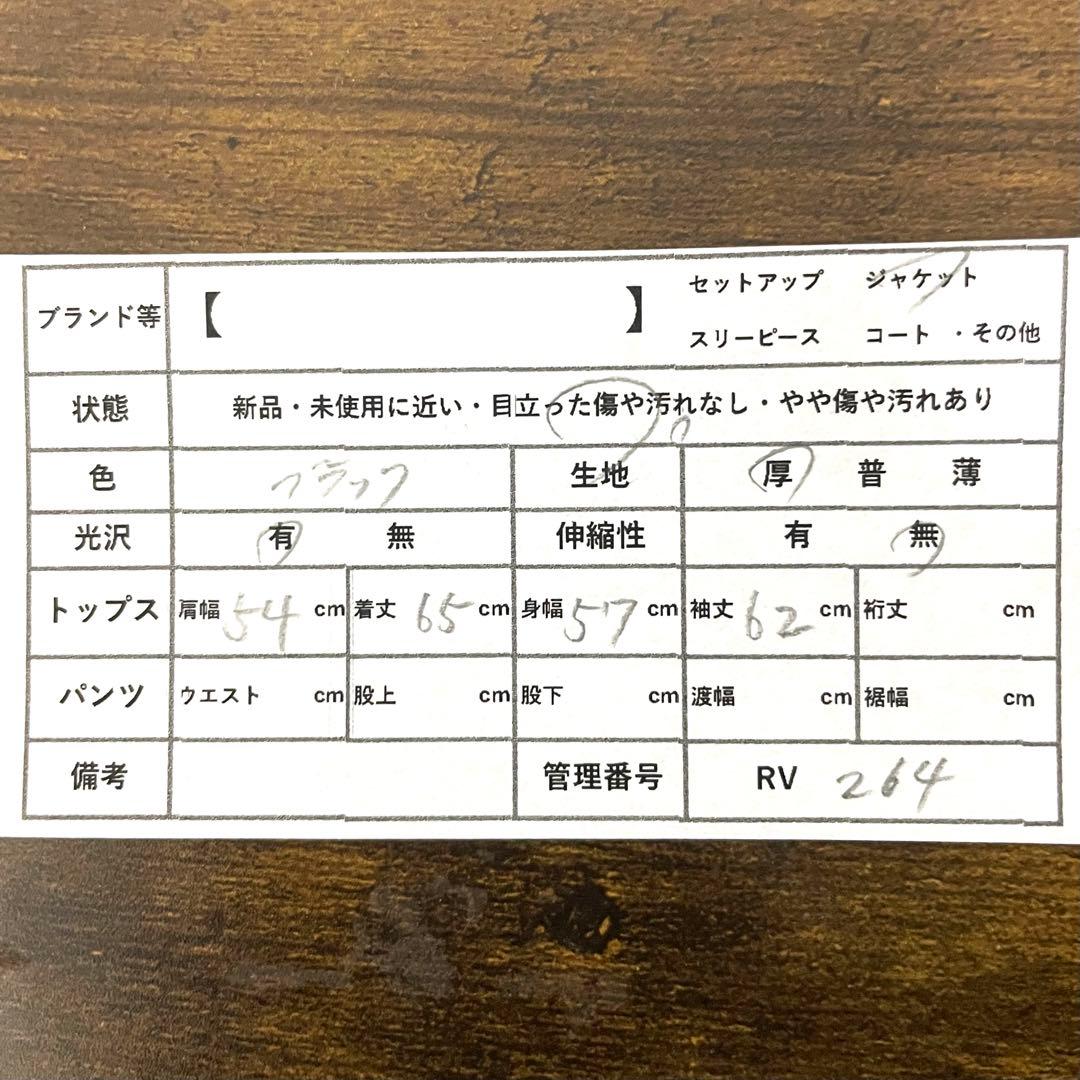 ブランド等 【 】 セットアップ ジャケット
スリーピース コート ・その他
状態 新品・未使用に近い・目立った傷や汚れなし・やや傷や汚れあり
色 ブラック 生地 厚 普 薄
光沢 有 無 伸縮性 有 無
トップス 肩幅 54 cm 着丈 65 cm 身幅 57 cm 袖丈 62 cm 裄丈 cm
パンツ ウエスト cm 股上 cm 股下 cm 渡幅 cm 裾幅 cm
備考 管理番号 RV 264